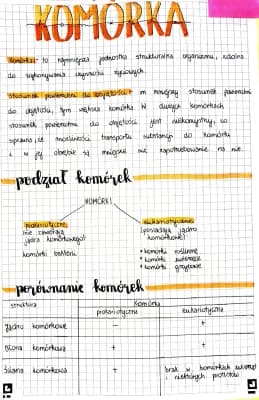 KOMÓRKA
Komórka - to najmniejsza jednostka strukturalna organizmu, zdolna
do wykonywania czynności życiowych.
Stosunek powierzchni do objętości - im mniejszy stosunek powierzchni
do objętości, tym większa komórka. W dużych komórkach
stosunek powierzchni do objętości jest niekorzystny, co
sprawia, iż możliwości transportu substancji do komórki
i w jej obrębie są mniejsze niż zapotrzebowanie na nie.
podział komórek
KOMÓRKI
prokariotyczne
eukariotyczne
nie zawierają
(posiadają jądro
jądra komórkowego)
komórkowe)
komórki bakterii
• komórki roślinne
• komórki zwierzęce
• komórki grzybowe
porównanie komórek
struktura
Komórka
prokariotyczna
eukariotyczna
Jądro komórkowe
-
+
Błona komórkowa
+
+
Ściana komórkowa
+
brak w komórkach zwierzęcych
i niektórych protistów